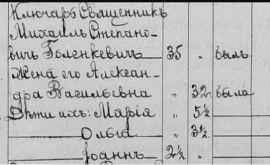 Ключарь Священникъ
Михаилъ Степано-
вичъ Голенкевичъ 35 . былъ
Жена его Алексан-
дра Васильевна „ 32 была
Дѣти ихъ: Марія „ 5½
Ольга „ 3½
Іоаннъ 2½